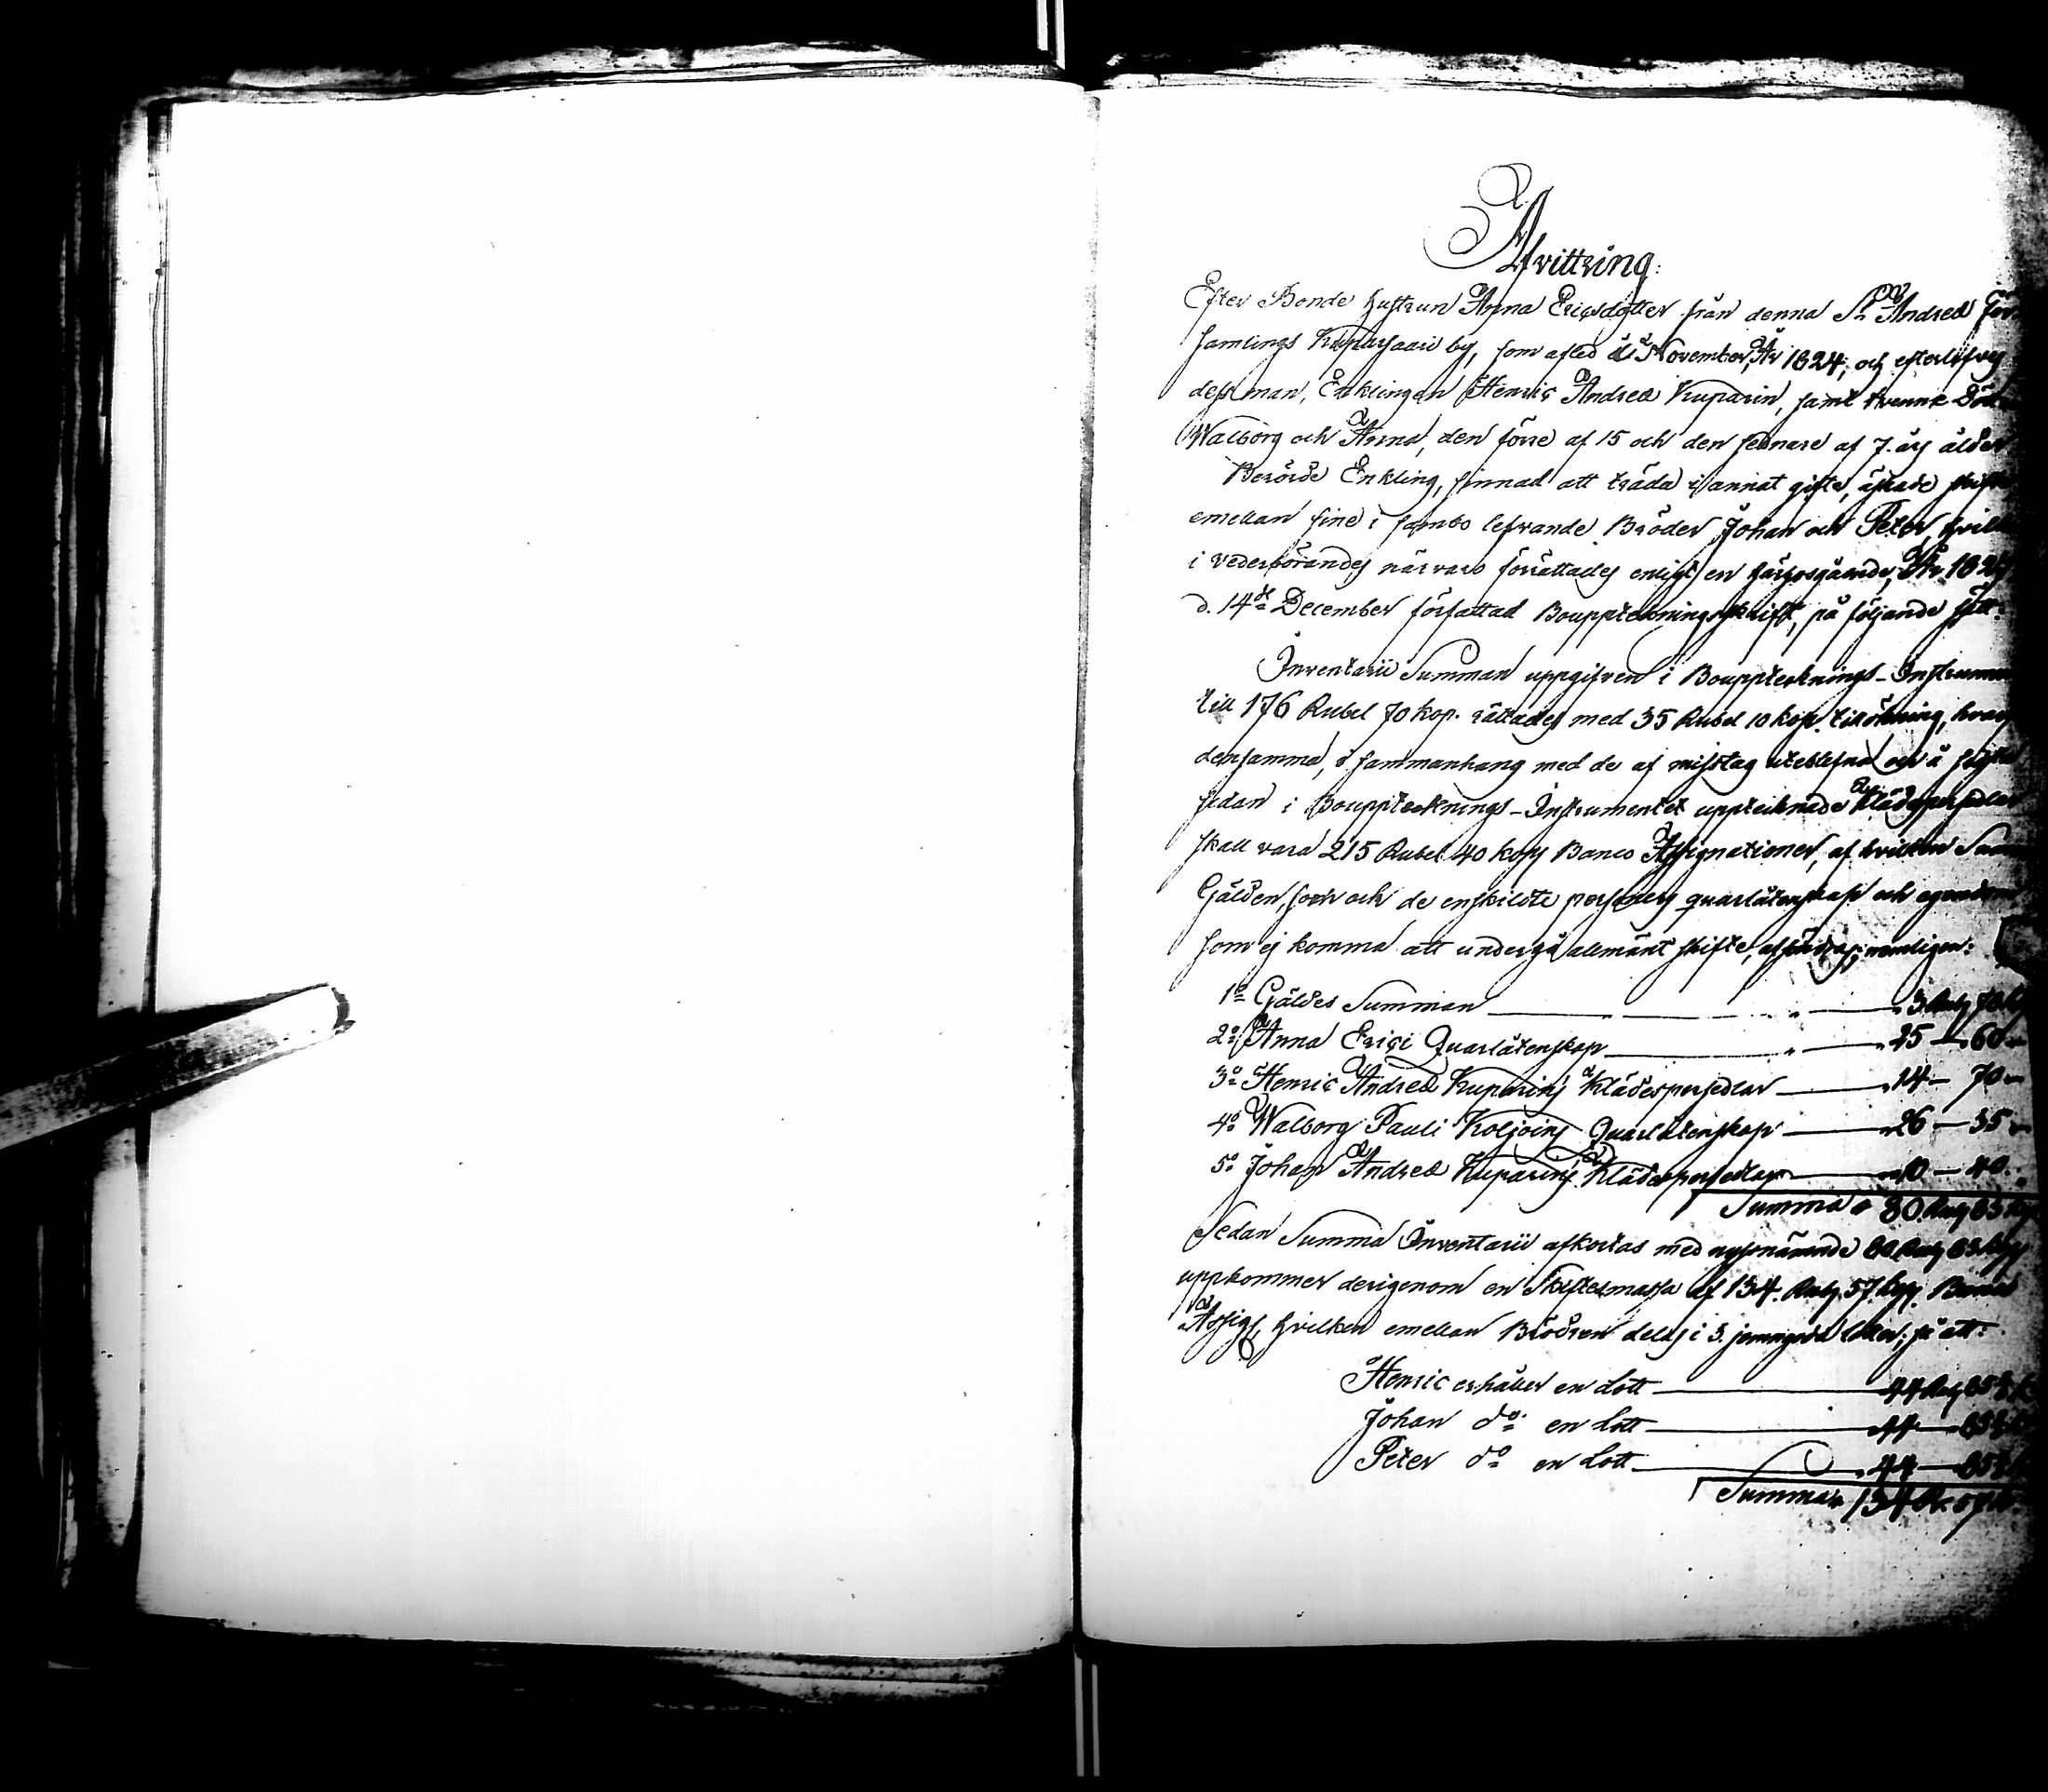 Afvittring:
Efter Bonde hustrun Anna Ericsdotter från denna St Andreæ För-
samlings Kuparsaari by, som afled November År 1824, och efterlefves
dess man, Enklingen Henric Andreæ Kuparin, samt tvenne
Walborg och Anna, den förre af 15 och den sednare af 7. års ålder
Berörde Enkling, sinnad att träda i annat gifte, äskade skifte
emellan sine i sambo lefvande Bröder Johan och Peter,
i vederbörandes närvaro förrättades enligt en härhosgående, År 1824
d. 14de December författad Bouppteckningsskrift, på följande sätt:
Inventarii Summan uppgifven i Bouppteknings-
till 176 Rubel 70 kop. rättades med 35 Rubel 10 kop. tilökning,
densamma, i sammanhang med de af misstag uteblefna och å
sedan i Bouppteknings-Instrumentet upptecknade Klädespersedlar
skall vara 215 Rubel 40 kop Banco Assignationer, af hvilken
Gälden, som och de enskildte personers quarlåtenskap och egendom
som ej komma att undergå allmänt skifte, afföndras; nemligen:
1o Gäldes Summan 3 Rub
2o Anna Erici Quarlåtenskap 25 — 60
3o Henric Andreæ Kuparins Klädespersedlar 14 — 70
4o Walborg Pauli Koljoins Quarlåtenskap 26 — 35
5o Johan Andreæ Kuparins Klädespersedlar 10 — 40
Summa 80 Rub 83 kop
Sedan Summa Inventarii afkortas med nyssnämnde 80 Rub 83 kop
uppkommer derigenom en Skiftesmassa af 134. Rub. 57. kop. Banco
Assig, hvilken emellan Bröderna delas i 3. jemngoda lotter; så att:
Henric erhåller en Lott 44 Rub 85
Johan do en Lott 44 — 85
Peter do en Lott 44 — 85
Summa 134 R. 57 k.